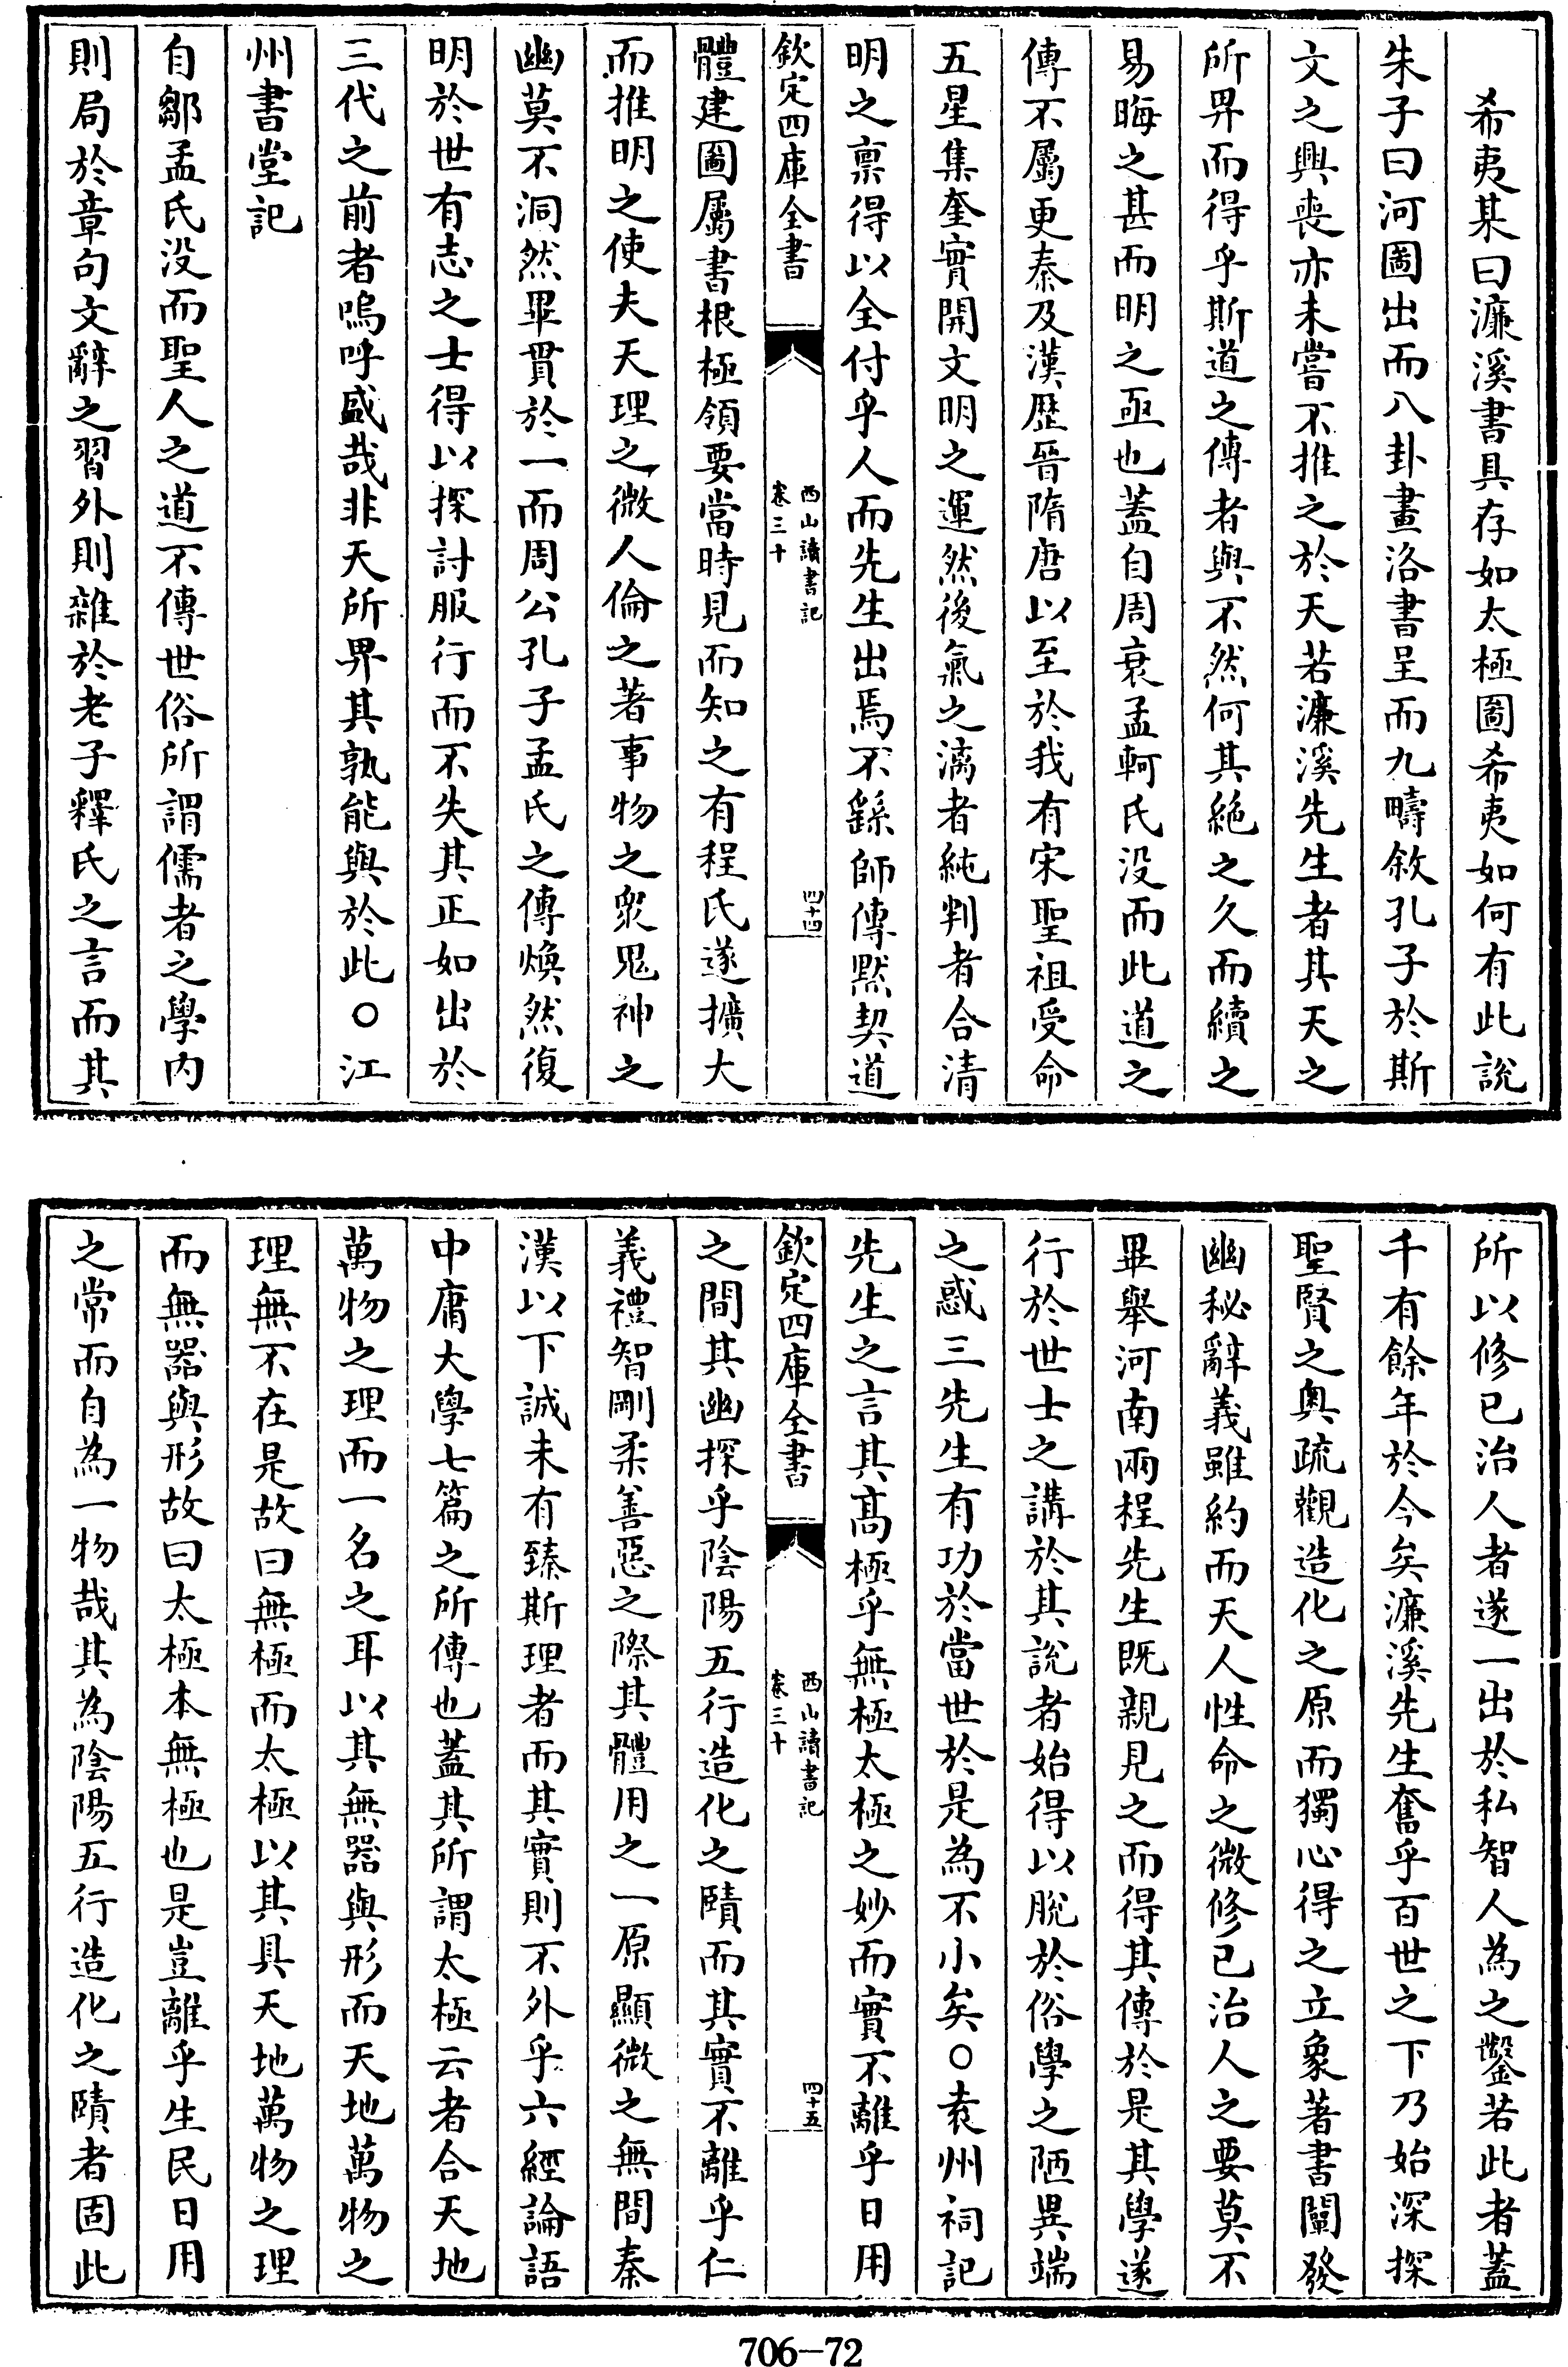 希夷某曰濂溪書具存如太極圖希夷如何有此說
朱子曰河圖出而八卦畫洛書呈而九疇敘孔子於斯
文之興喪亦未嘗不推之於天若濂溪先生者其天之
所畀而得乎斯道之傳者與不然何其絶之久而續之
易晦之甚而明之亟也蓋自周衰孟軻氏没而此道之
傳不屬更秦及漢歴晉隋唐以至於我有宋聖祖受命
五星集奎實開文明之運然後氣之漓者純判者合清
明之禀得以全付乎人而先生出焉不繇師傳黙契道
欽定四庫全書
西山讀書記
卷三十
四十四
體建圖屬書根極領要當時見而知之有程氏遂擴大
而推明之使夫天理之微人倫之著事物之衆鬼神之
幽莫不洞然畢貫於一而周公孔子孟氏之傳煥然復
明於世有志之士得以探討服行而不失其正如出於
三代之前者嗚呼盛哉非天所畀其孰能與於此○江
州書堂記
自鄒孟氏没而聖人之道不傳世俗所謂儒者之學内
則局於章句文辭之習外則雜於老子釋氏之言而其
所以修已治人者遂一出於私智人為之鑿若此者蓋
千有餘年於今矣濂溪先生奮乎百世之下乃始深探
聖賢之奥疏觀造化之原而獨心得之立象著書闡發
幽秘辭義雖約而天人性命之微修已治人之要莫不
畢舉河南兩程先生既親見之而得其傳於是其學遂
行於世士之講於其說者始得以脱於俗學之陋異端
之惑三先生有功於當世於是為不小矣○袁州祠記
先生之言其髙極乎無極太極之妙而實不離乎日用
欽定四庫全書
西山讀書記
卷三十
四十五
之間其幽探乎陰陽五行造化之賾而其實不離乎仁
義禮智剛柔善惡之際其體用之一原顯微之無間秦
漢以下誠未有臻斯理者而其實則不外乎六經論語
中庸大學七篇之所傳也蓋其所謂太極云者合天地
萬物之理而一名之耳以其無器與形而天地萬物之
理無不在是故曰無極而太極以其具天地萬物之理
而無器與形故曰太極本無極也是豈離乎生民日用
之常而自為一物哉其為陰陽五行造化之賾者固此
706-72